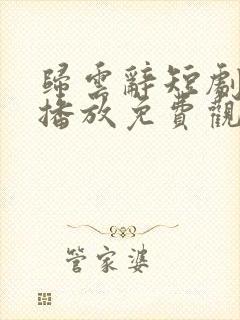 歸雲辭短劇
播放免費觀
管家婆